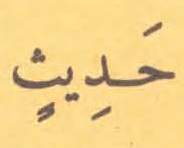 حَدِيثٍ